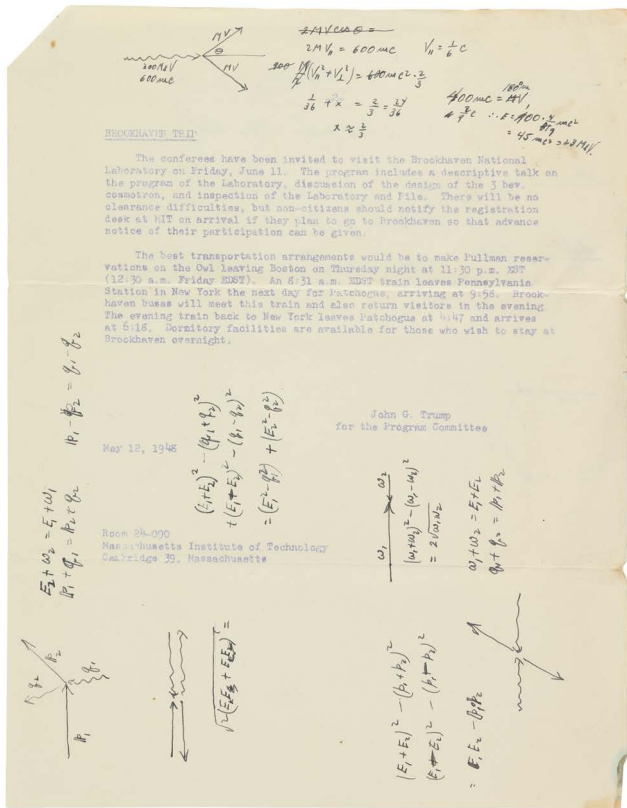 2MV cos θ =
2MV∥ = 600mc V∥ = 1/6 c
MV
θ
MV
300MeV
600mc
(V∥² + V⊥²) = 600mc² · 2/3
1/36 + x² = 2/3 = 24/36
x ≈ 2/3
BROOKHAVEN TRIP
The conferees have been invited to visit the Brookhaven National
Laboratory on Friday, June 11. The program includes a descriptive talk on
the program of the Laboratory, discussion of the design of the 3 bev.
cosmotron, and inspection of the Laboratory and Pile. There will be no
clearance difficulties, but non-citizens should notify the registration
desk at MIT on arrival if they plan to go to Brookhaven so that advance
notice of their participation can be given.
The best transportation arrangements would be to make Pullman reser-
vations on the Owl leaving Boston on Thursday night at 11:30 p.m. EST
(12.30 a.m. Friday EDST). An 8:31 a.m. EDST train leaves Pennsylvania
Station in New York the next day for Patchogue, arriving at 9:56. Brook-
haven buses will meet this train and also return visitors in the evening.
The evening train back to New York leaves Patchogue at 4:47 and arrives
at 6:18. Dormitory facilities are available for those who wish to stay at
Brookhaven overnight.
John G. Trump
for the Program Committee
May 12, 1948
Room 24-090
Massachusetts Institute of Technology
Cambridge 39, Massachusetts
E₂ + ω₂ = E₁ + ω₁
p₁ + q₁ = p₂ + q₂ p₁ - p₂ = q₁ - q₂
(E₁+E₂)² - (q₁+q₂)²
+ (E₁-E₂)² - (q₁-q₂)²
= (E₁²-q₁²) + (E₂²-q₂²)
ω₁ ω₂
(ω₁+ω₂)² - (ω₁-ω₂)²
= 2√ω₁ω₂
ω₁ + ω₂ = E₁ + E₂
q₁ + q₂ = p₁ + p₂
p₁ p₂ q₂ q₁
(E₁+E₂)² - (p₁+p₂)²
(E₁-E₂)² - (p₁-p₂)²
= E₁E₂ - p₁p₂